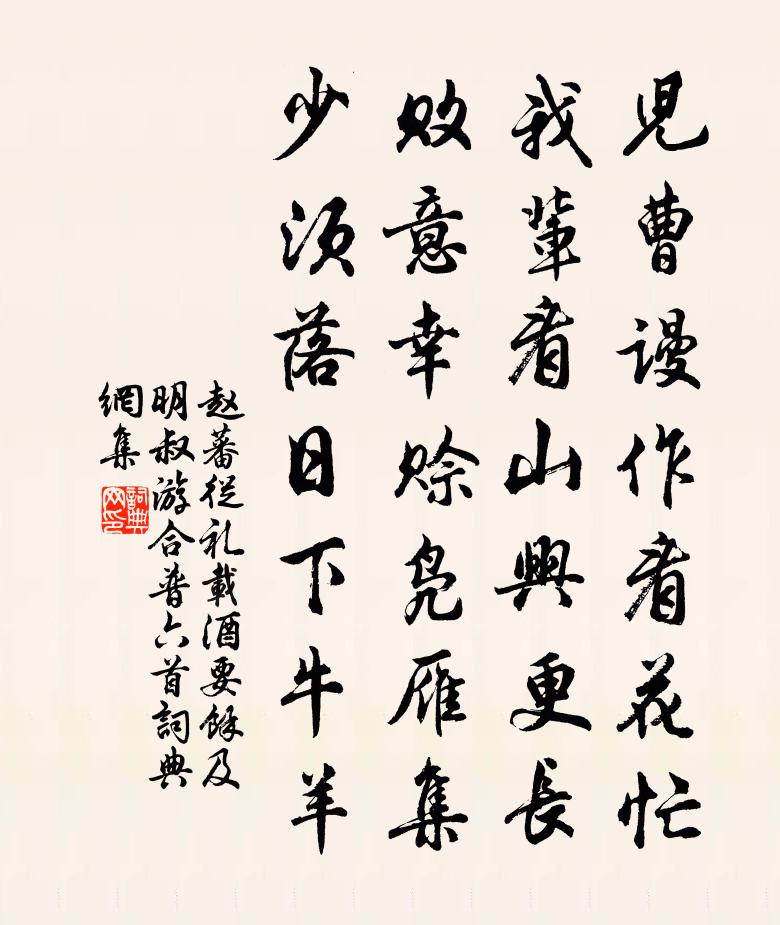 児曹謾作看花忙
我輩看山興更長
敗意幸賒鳧雁集
少須落日下牛羊
赵蕃從礼載酒要餘及
明叔游合普六首詞典
網集
詞典網印